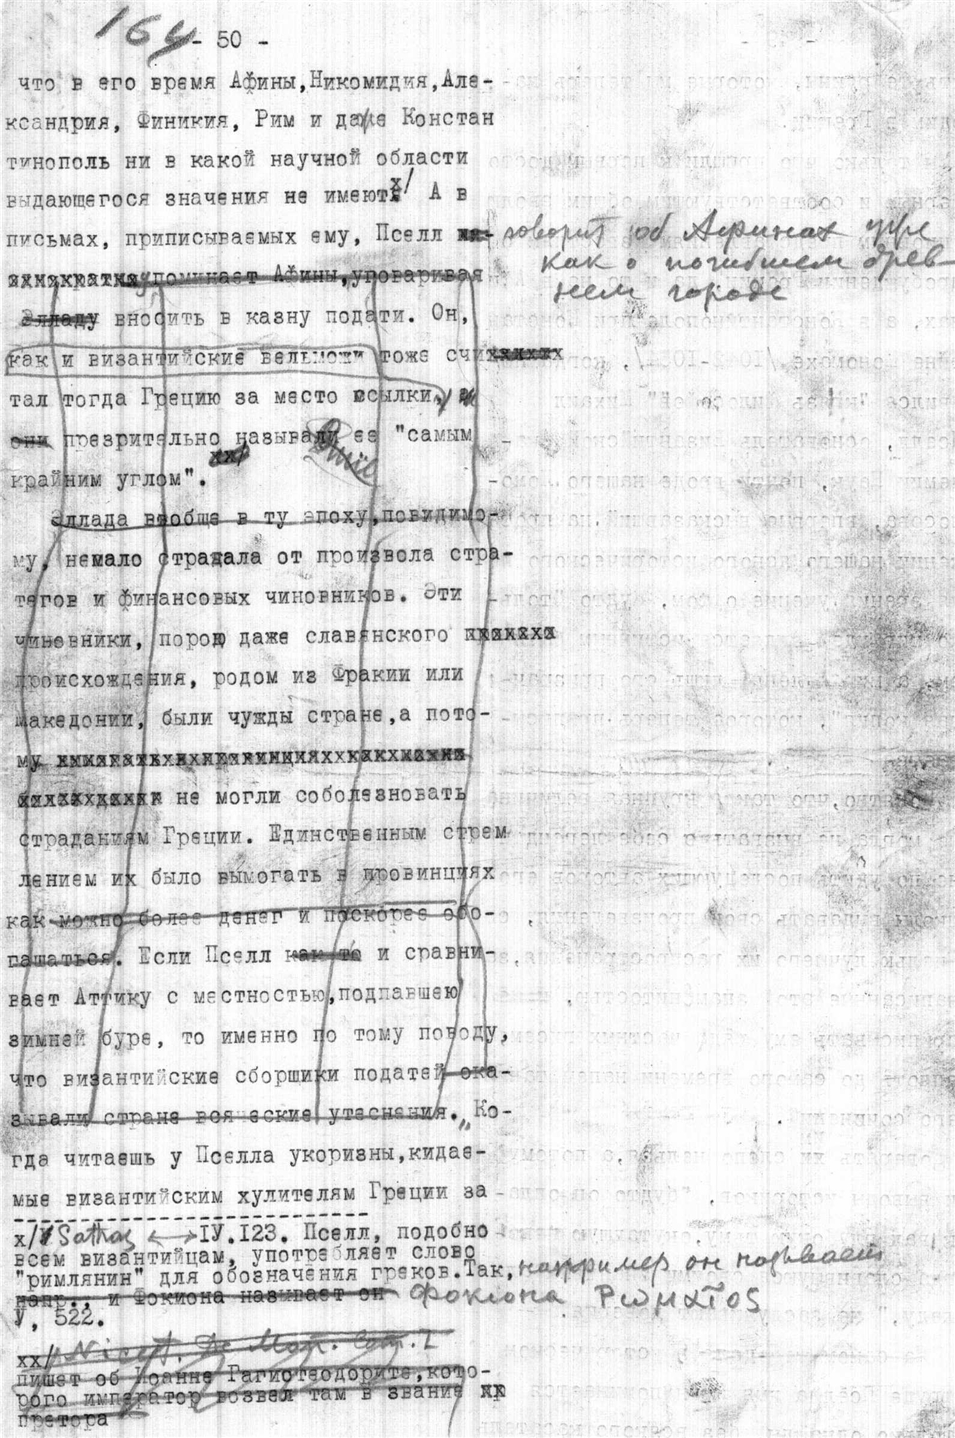 164 - 50 -
что в его время Афины,Никомидия,Але-
ксандрия, Финикия, Рим и даже Констан
тинополь ни в какой научной области
выдающегося значения не имеют. х/ А в
письмах, приписываемых ему, Пселл говорит об Афинах уже
как о погибшем древ-
нем городе
упоминает Афины,уговаривая
Элладу вносить в казну подати. Он,
как и византийские вельможи тоже счи
тал тогда Грецию за место ссылки, и
они презрительно называли ее "самым
хх/
крайним углом".
Эллада вообще в ту эпоху,повидимо-
му, немало страдала от произвола стра-
тегов и финансовых чиновников. Эти
чиновники, порою даже славянского
происхождения, родом из Фракии или
Македонии, были чужды стране,а пото-
му
не могли соболезновать
страданиям Греции. Единственным стрем
лением их было вымогать в провинциях
как можно более денег и поскорее обо-
гащаться. Если Пселл как то и сравни-
вает Аттику с местностью,подпавшею
зимней буре, то именно по тому поводу,
что византийские сборщики податей ока-
зывали стране всяческие утеснения. „Ко-
гда читаешь у Пселла укоризны,кидае-
мые византийским хулителям Греции за
х/ Sathas IУ.I23. Пселл, подобно
всем византийцам, употребляет слово
"римлянин" для обозначения греков.Так, например он называет
напр., и Фокиона называет он Фокіона Ρωμαῖος
У, 522.
хх/ Nicet. De Man. Com. I
пишет об Иоанне Гагиотеодорите,кото-
рого император возвел там в звание
претора